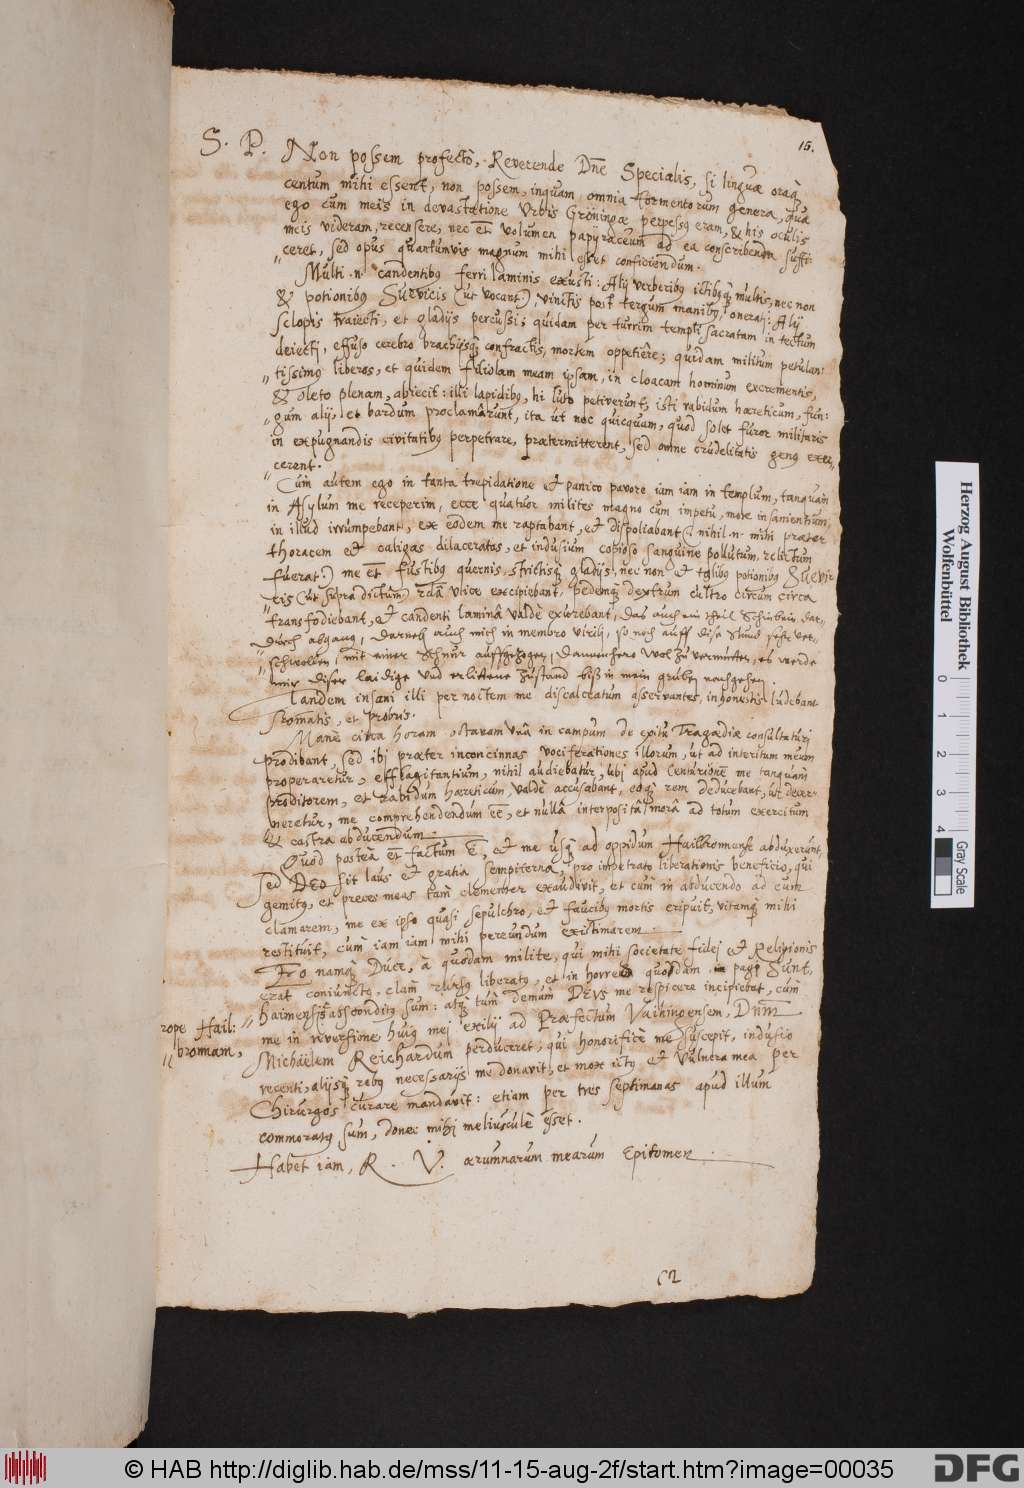 15.
S. P. Non possem profectò, Reverende Dne Specialis, si linguæ oraq̃
centum mihi essent, non possem, inquam, omnia tormentorum genera, quæ
ego cum meis in devastatione Urbis Gröningæ perpessq eram, & his oculis
meis videram, recensere, nec et volumen papÿraceum ad ea conscribenda suffi:
ceret, sed opus quantumvis magnum mihi esset conficiendum.
Multi .n. candentibq ferri laminis exusti: Alij verberibq ictibq̃ multis, nec non
& potionibq Suevicis (ut vocant), vinctis post tergum manibq, onerati: Alij
sclopis traiecti, et gladijs percussi; quidam per turrim templi sacratam in tectum
deiecti, effuso cerebro brachijsq̃ confractis, mortem oppetiêre; quidam militum petulan:
tissimq liberos, et quidem filiolam meam ipsam, in cloacam hominum excrementis,
& oleto plenam, abiecit: illi lapidibq, hi luto petiverunt, isti rabidum hæreticum, fun:
gum alij, et bardum proclamârunt, ita ut nec quicquam, quod solet furor militaris
in expugnandis civitatibq perpetrare, prætermitterent, sed omne crudelitatis genq exer:
cerent.
Cùm autem ego in tanta trepidatione et panico pavore iam iam in templum, tanquam
in Asylum me receperim, ecce quatuor milites magno cum impetu, more insanientium,
in illud irrumpebant, ex eodem me raptabant, et dispoliabant (: nihil .n. mihi præter
thoracem et caligas dilaceratas, et indusium copioso sanguine pollutum, relictum
fuerat:) me et fustibq quernis, strictisq̃ gladijs, nec non et talibq potionibq Suevi:
cis (ut supra dictum) vice excipiebant, pedemq̃ dextrum cultro circum circa
transfodiebant, et candenti laminâ valdè exurebant, das auch ein theil
durch abgang, darneb auch mich in membro virili, so noch auff dise Stund sehr ver:
schwollen, mit einer Schnur auffgezogen, dannenhero wol zu vermuten, es werde
mir diser laidige und erlittene zustand biß in mein gruben nachgehen.
Tandem insani illi per noctem me discalceatum asservantes, inhonestis ludebant
stomatis, et probris.
Manè circa horam octavam unâ in campum de exitu Tragædiæ consultaturi
prodibant, sed ibi præter inconcinnas vociferationes illorum, ut ad interitum meum
properaretur, efflagitantium, nihil audiebatur, ubi apud Centurionē me tanquam
proditorem, et rabidum hæreticum, valdè accusabant, eoq̃ rem deducebant, ut decer:
neretur, me comprehendendum eē, et nullâ interpositâ morâ ad totum exercitum
& castra abducendum.
Quod postea et factum ē, et me usq̃ ad oppidum Hailbronnense abduxerunt,
sed DEO sit laus et gratia sempiterna, pro impetrato liberationis beneficio, qui
gemitq, et preces meas tam clementer exaudivit, et cùm in abducendo ad eum
clamarem, me ex ipso quasi sepulchro, et faucibq mortis eripuit, vitamq̃ mihi
restituit, cum iam iam mihi pereundum existimarem.
Ero namq̃ Duce, à quodam milite, qui mihi societate fidei et Religionis
erat coniunctq, clam rursq liberatq, et in horreo quodam, in pago Sunt:
haimensi absconditq sum: atq̃ tum demùm DEUS me respicere incipiebat, cùm
me in reversione huiq mei exilij ad Præfectum Vaihingensem, Dnm̄
Michaëlem Reichardum perduceret; qui honorificè me suscepit, indusio
recenti, alijsq̃ rebq necessarijs me donavit, et mox ictq et vulnera mea per
Chirurgos curare mandavit: etiam per tres septimanas apud illum
commoratq sum, donec mihi meliusculè esset.
Habet iam, R. V. ærumnarum mearum Epitomen.
rope Hail:
bronnam,
C2
Herzog August Bibliothek
Wolfenbüttel
0 1 2 3 4
Gray Scale
© HAB http://diglib.hab.de/mss/11-15-aug-2f/start.htm?image=00035
DFG